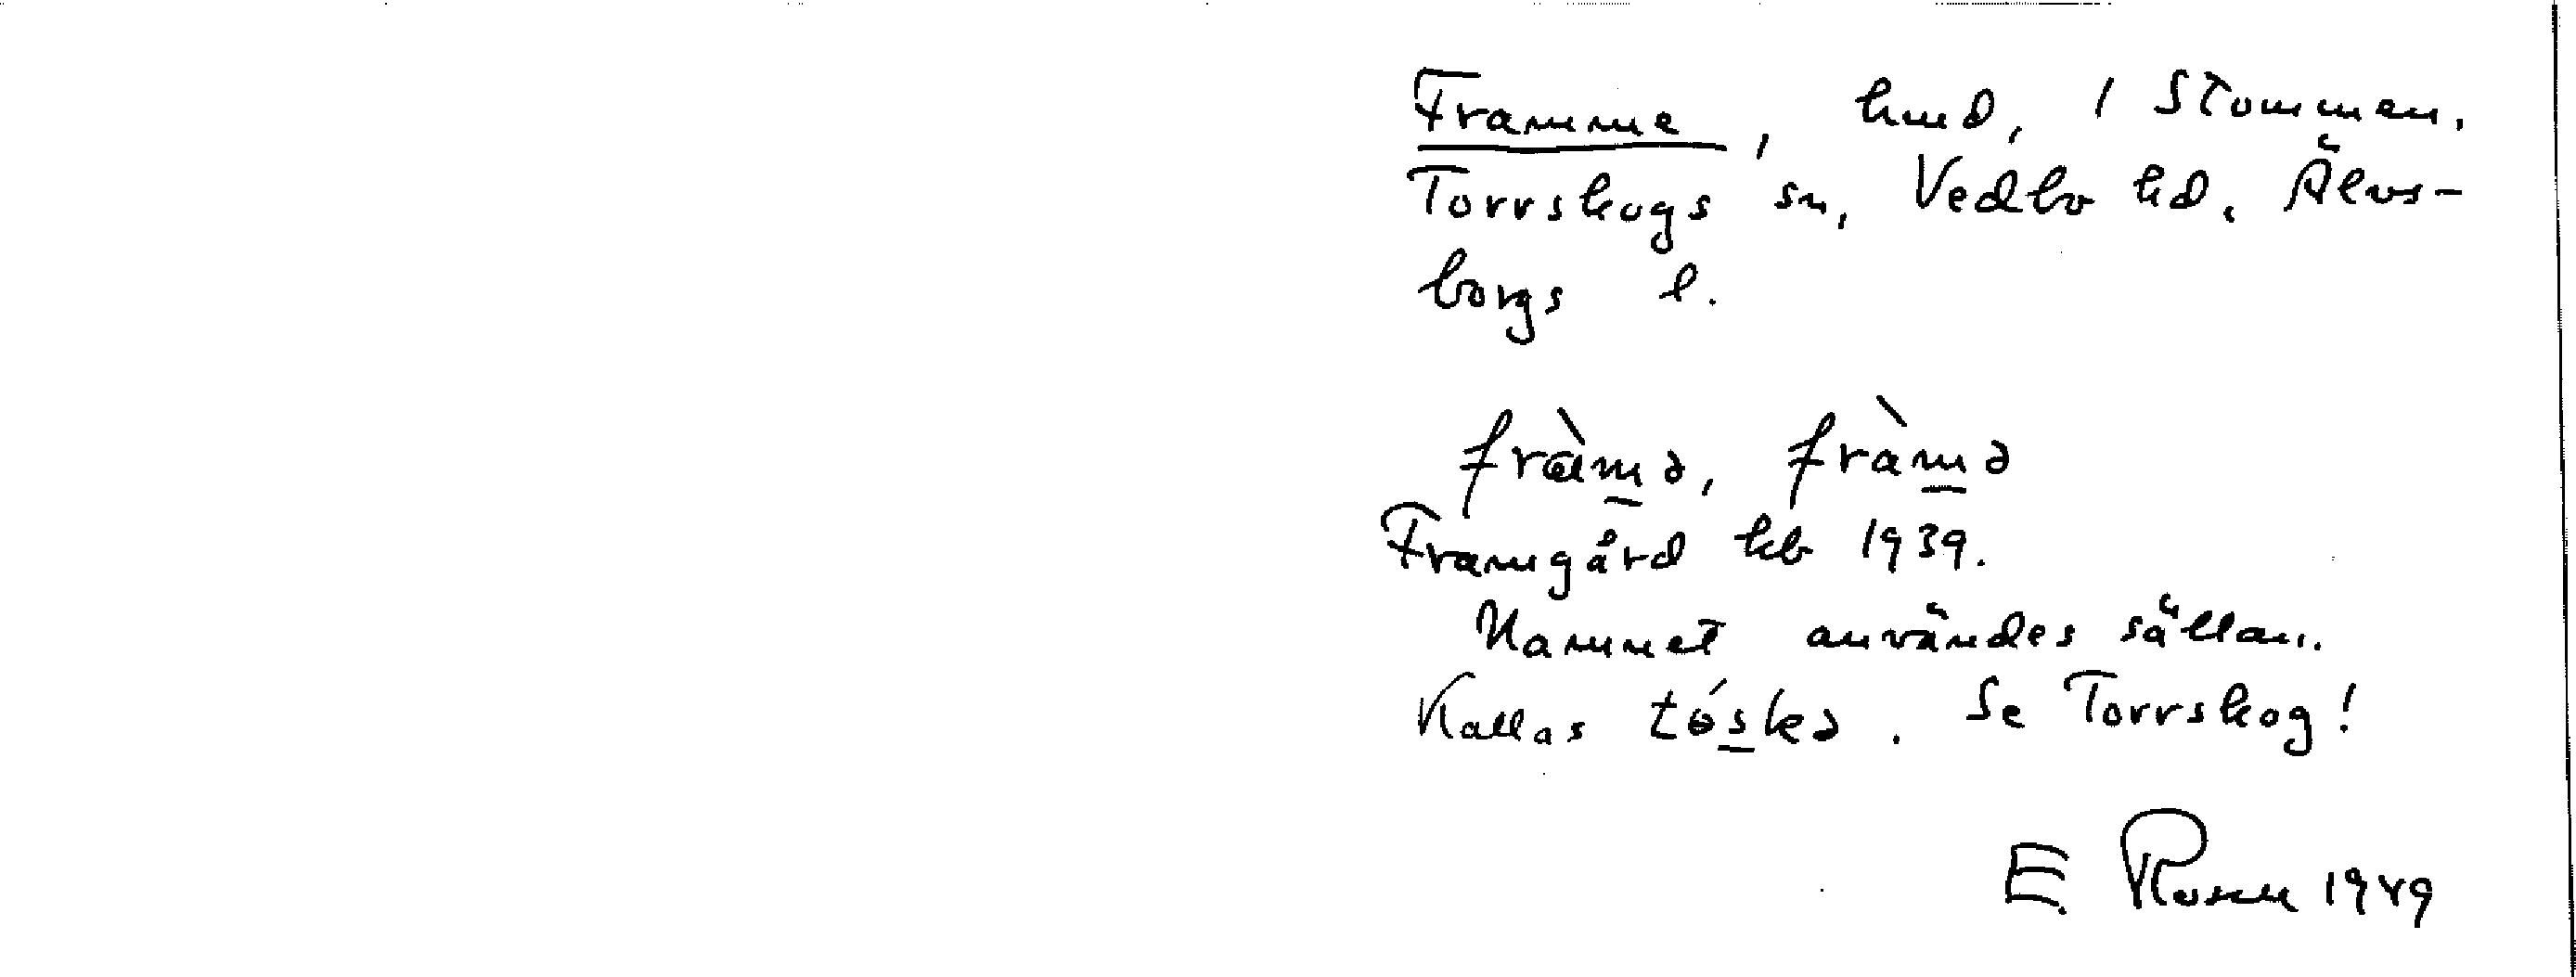 Framme, hmd, 1 Stommen,
Torrskogs sn, Vedbo hd, Älvs-
borgs l.
fræ̀m̲ə, fràm̲ə
Framgård kb 1939.
Namnet användes sällan.
Kallas tós̲kə. Se Torrskog!
E. Rosell 1949